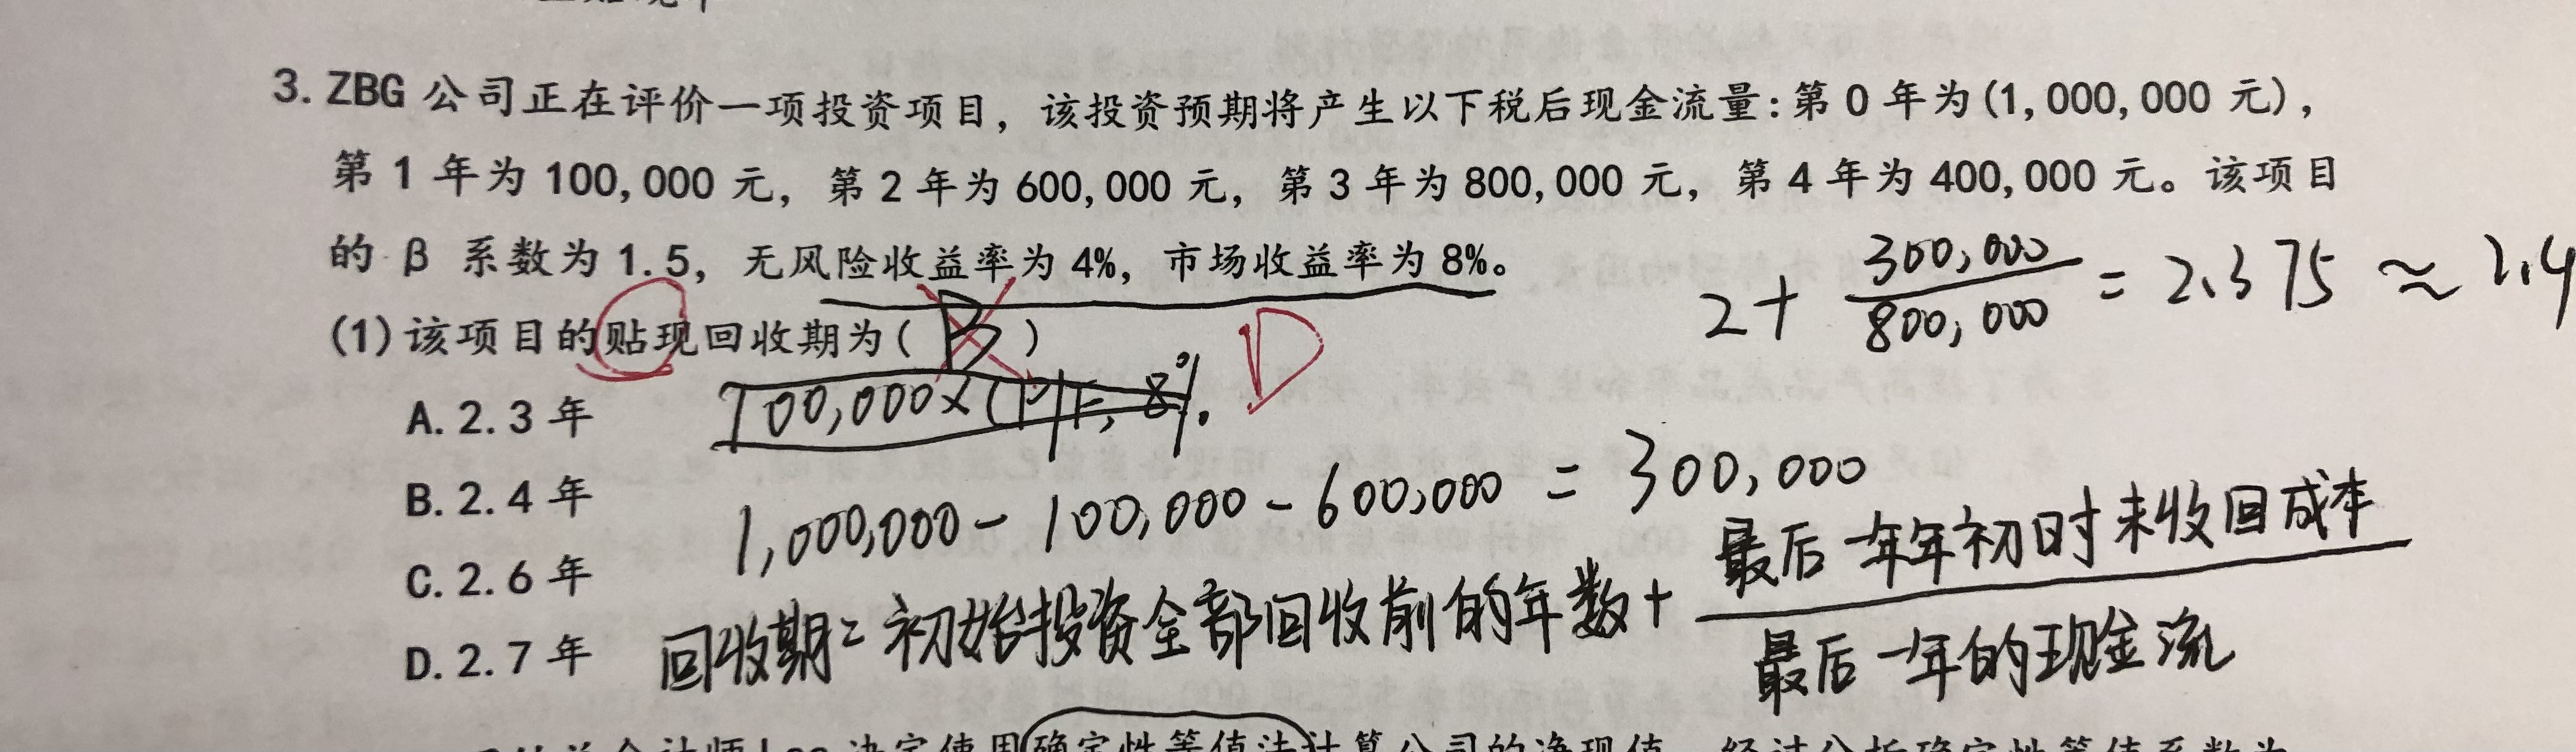 3. ZBG 公司正在评价一项投资项目，该投资预期将产生以下税后现金流量：第 0 年为(1,000,000 元)，
第 1 年为 100,000 元，第 2 年为 600,000 元，第 3 年为 800,000 元，第 4 年为 400,000 元。该项目
的 β 系数为 1.5，无风险收益率为 4%，市场收益率为 8%。
2+ 300,000/800,000 = 2.375 ≈ 2.4
(1) 该项目的贴现回收期为( B ) D
A. 2.3 年
700,000×(P/F, 8%.
B. 2.4 年
1,000,000 - 100,000 - 600,000 = 300,000
C. 2.6 年
D. 2.7 年
回收期= 初始投资全部回收前的年数+ 最后一年年初时未收回成本/最后一年的现金流
决定使用确定性等值法计算公司的净现值